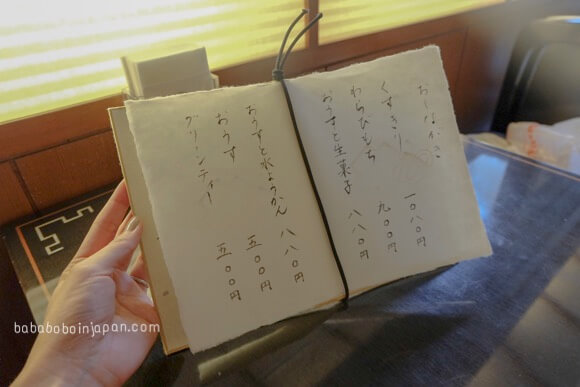 おしながき
くずきり 一〇八〇円
わらびもち 九〇〇円
おうすと生菓子 八八〇円
おうすと水ようかん 八八〇円
おうす 五〇〇円
グリーンティー 五〇〇円
bababoboinjapan.com